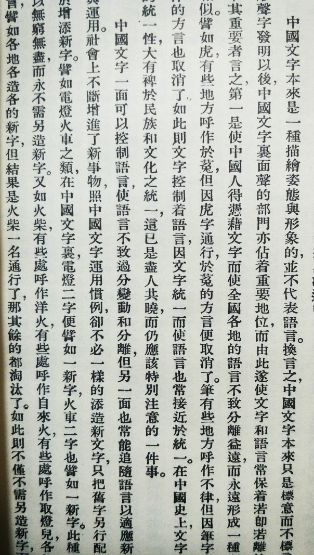 中國文字本來是一種描繪姿態與形象的,並不代表語言。換言之,中國文字本來只是標意而不標
聲字發明以後,中國文字裏面聲的部門亦佔着重要地位,而由此遂使文字和語言常保着若卽若離
其重要者言之,第一是使中國人得憑藉文字而使全國各地的語言不致分離益遠而永遠形成一種
似。譬如虎,有些地方呼作於菟,但因虎字通行,於菟的方言便取消了。筆有些地方呼作不律,但因筆字
的方言也取消了。如此則文字控制着語言,因文字統一而使語言也常接近於統一。在中國史上文字
的統一性大有裨於民族和文化之統一,這已是盡人共曉,而仍應該特別注意的一件事。
中國文字一面可以控制語言,使語言不致過分變動和分離,但另一面也常能追隨語言以適應新
與運用。社會上不斷增進了新事物,照中國文字運用慣例,卻不必一樣的添造新文字,只把舊字另行配
於增添新字。譬如電燈火車之類,在中國文字裏電燈二字便譬如一新字,火車二字也譬如一新字。此種
以無窮無盡而永不需另造新字。又如火柴有些處呼作洋火,有些處呼作自來火,有些處呼作取燈兒,各
會譬如各地各造各的新字,但結果是火柴一名通行了,那其餘的都淘汰了。如此則不僅不需另造新字,